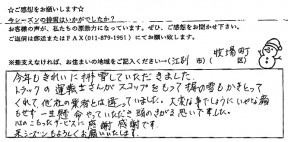 ☆ご感想をお願いします☆
今シーズンの排雪はいかがでしたか？
お客様の声が、私たちの原動力になっています。ぜひ、ご感想をお聞かせ下さい。
ご返信は郵送またはFAX(011-879-1951)にてお願い致します。
※差支えなければ、お住まいの地域をご記入ください→(江別 市)( 牧場町 区)
今年もきれいに排雪していただきました。
トラックの運転士さんがスコップをもって 塀の雪もかきとって
くれて他社の業者とは違っていました。大変な事でしょうにいやな顔
もせず一生懸命やっていただき頭のさがる思いでました。
心のこもったサービスに感謝感謝です
来シーズンもよろしくお願いいたします。